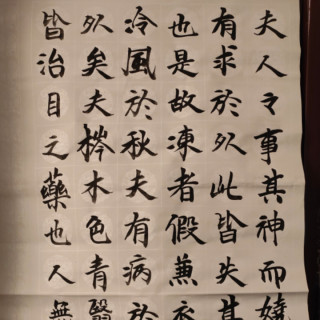 夫人之事其神而嬈
有求於外此皆失其
也是故凍者假兼衣
泠風於秋夫有病於
外矣夫梣木色青翳
皆治目之藥也人無